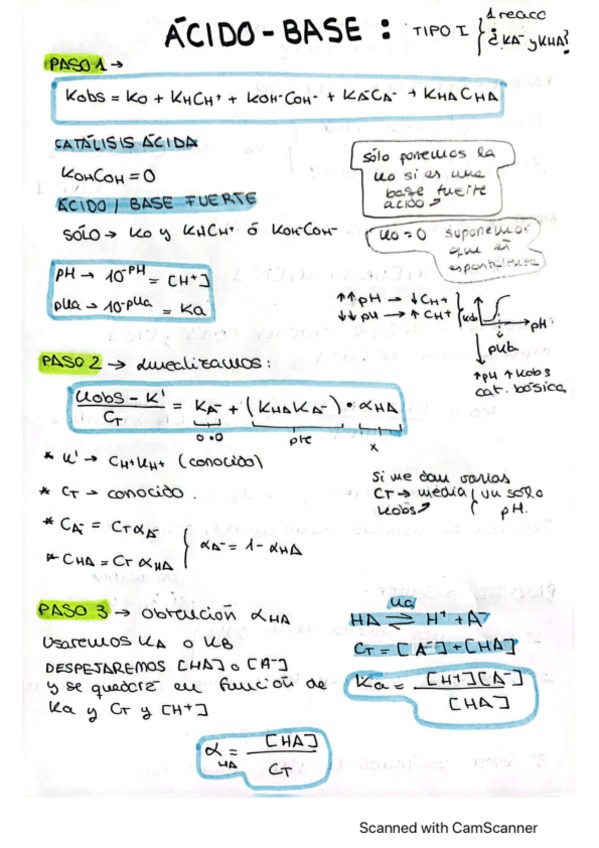 ÁCIDO-BASE: TIPO I { 1 reacc
¿KA⁻ y KHA?
PASO 1 →
Kobs = K0 + KHCH⁺ + KOH⁻COH⁻ + KA⁻CA⁻ + KHACHA
CATÁLISIS ÁCIDA
KOHCOH = 0
ÁCIDO/BASE FUERTE
SÓLO → K0 y KHCH⁺ ó KOH⁻COH⁻
sólo ponemos la
K0 si es una
base fuerte
ácido
K0 = 0 suponemos
que es
espontánea
pH → 10^-pH = [H⁺]
pKa → 10^-pKa = Ka
↑↑ pH → ↓ CH⁺
↓↓ pH → ↑ CH⁺
Kobs
pH
pKb
↑pH ↑Kobs
cat. básica
PASO 2 → linealizamos:
(Kobs - K')/CT = KA⁻ + (KHA KA⁻) · αHA
0.0 pte x
* K' → CH⁺KH⁺ (conocido)
* CT → conocido.
* CA⁻ = CT αA⁻
* CHA = CT αHA
αA⁻ = 1 - αHA
Si me dan varias
CT → media / un sólo
Kobs pH.
PASO 3 → obtención αHA
Usaremos KA o KB
DESPEJAREMOS [HA] o [A⁻]
y se quedará en función de
Ka y CT y [H⁺]
Ka
HA ⇌ H⁺ + A⁻
CT = [A⁻] + [HA]
Ka = [H⁺][A⁻] / [HA]
αHA = [HA] / CT
Scanned with CamScanner